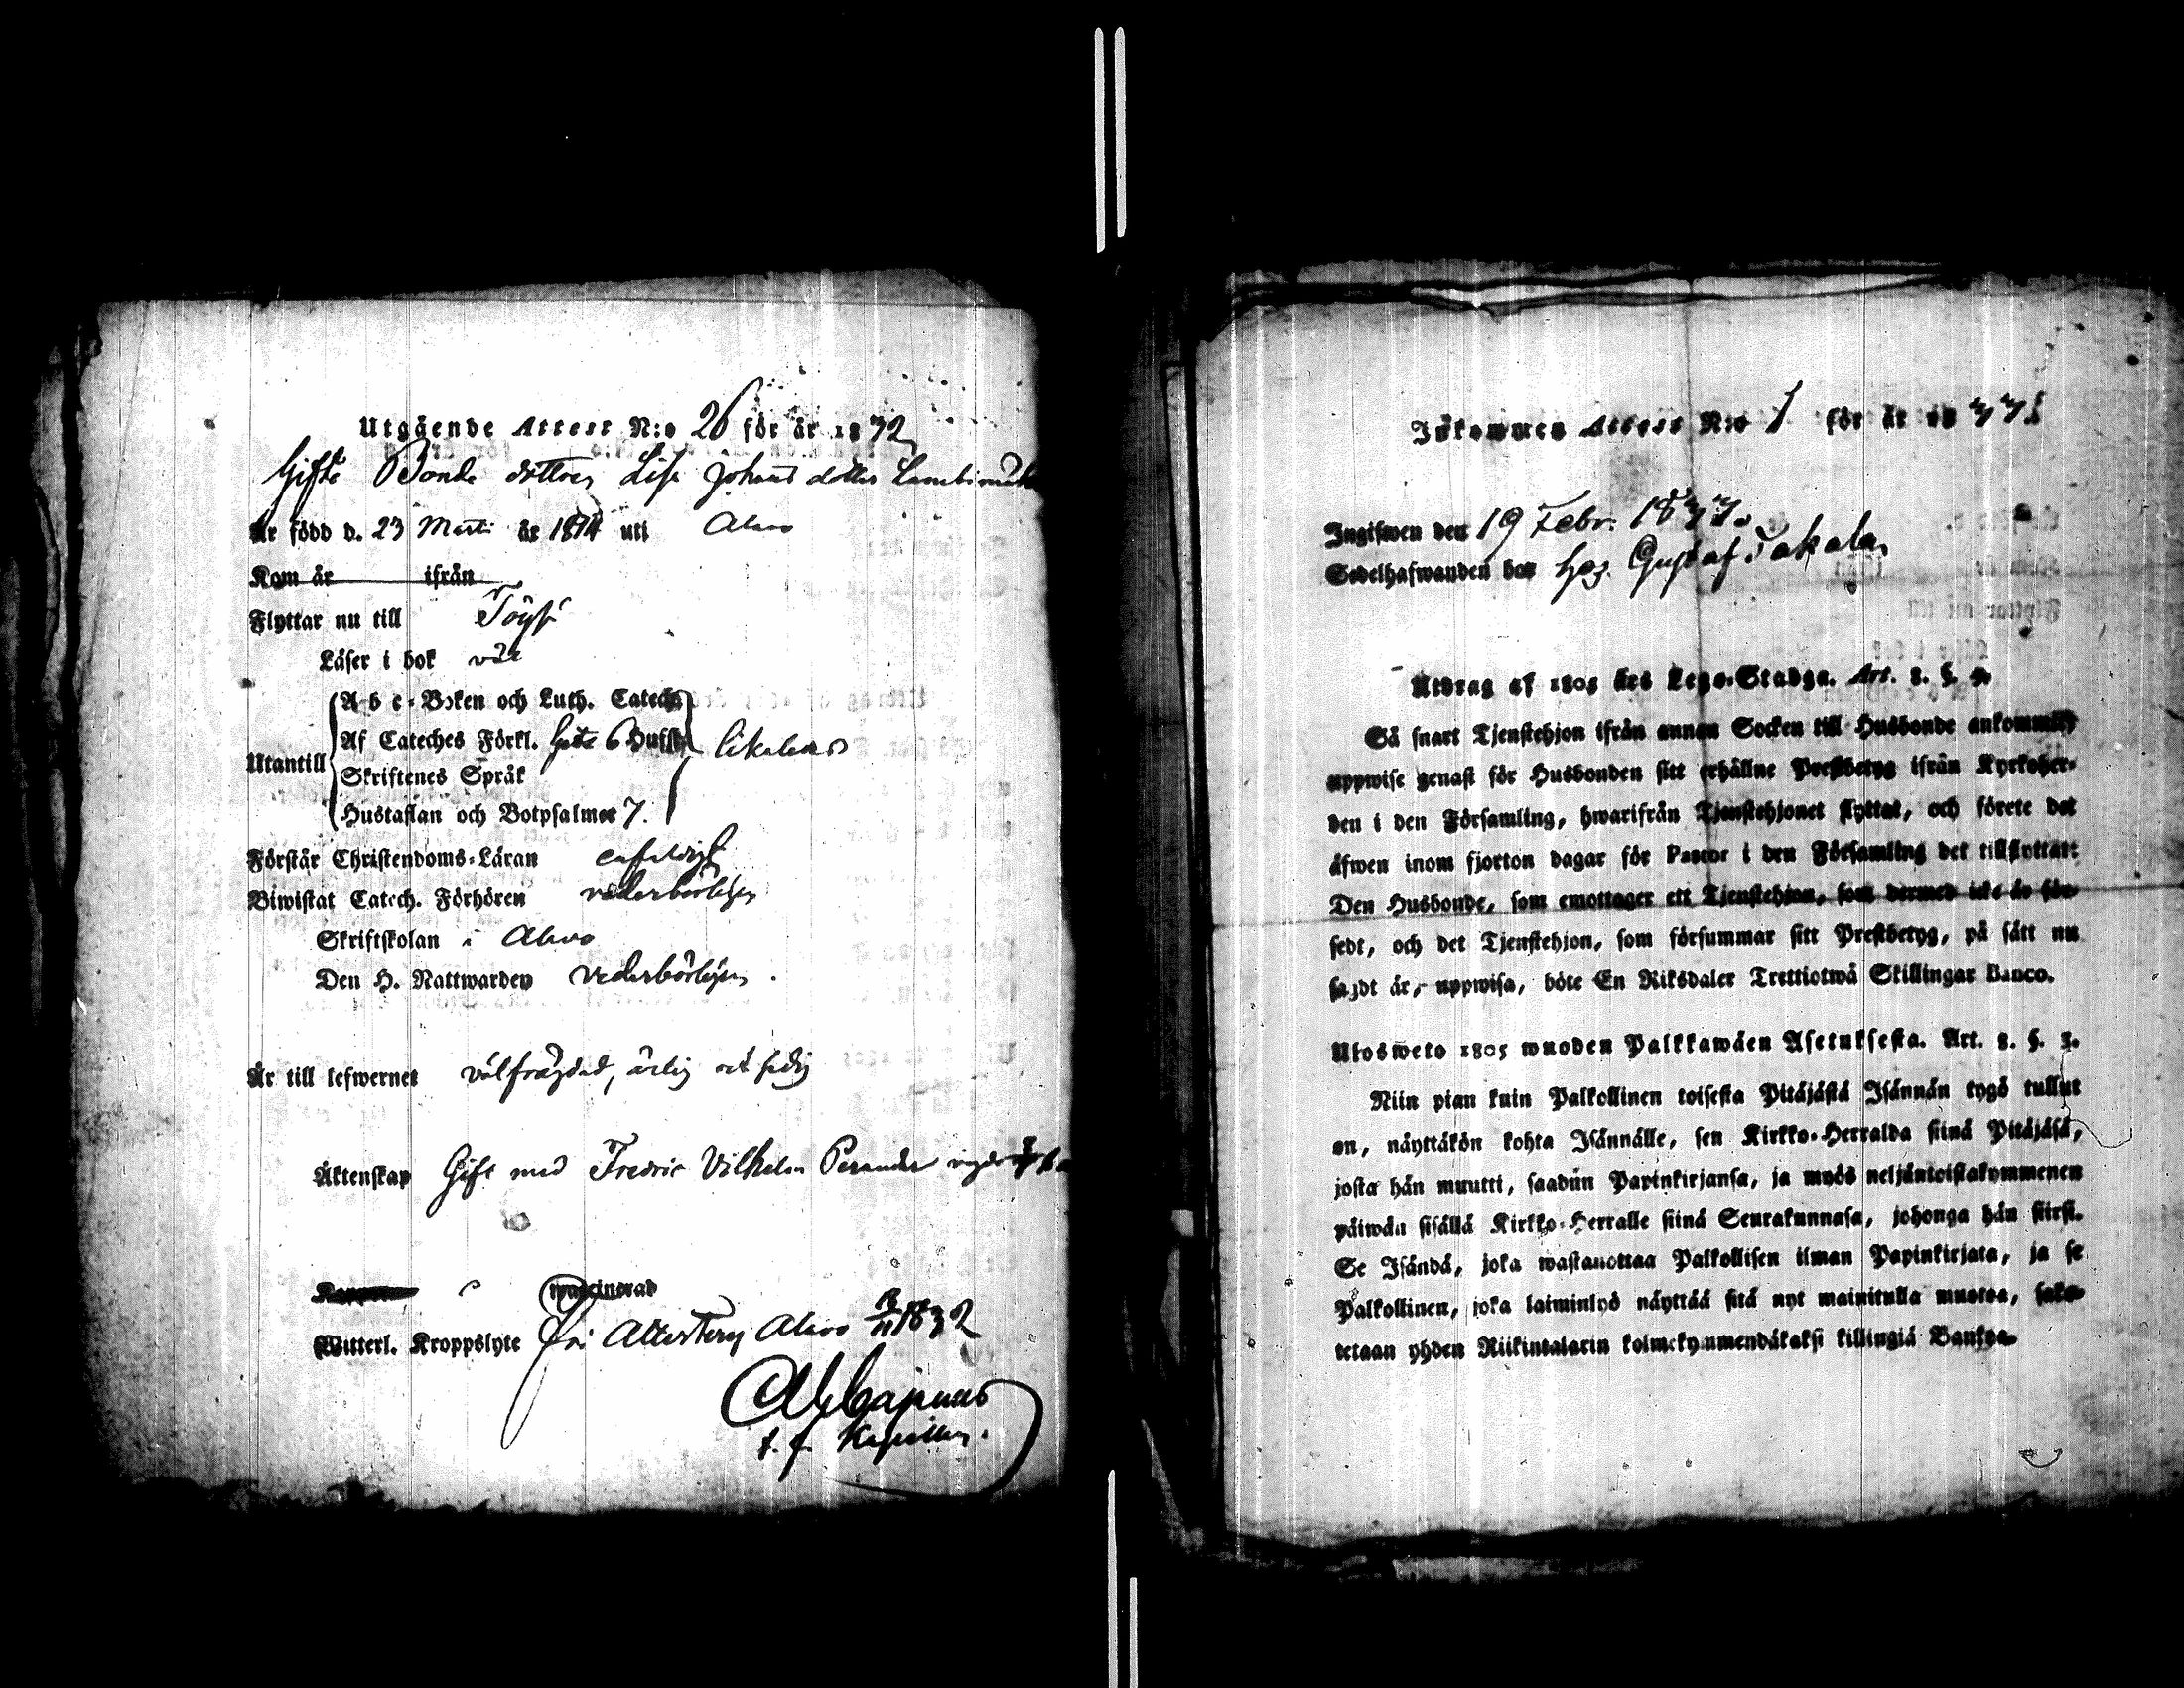 Utgående Attest N:o 26 för år 1832
Gifte Bonde dottren Lisa Johans dotter
Är född d. 23 Marti år 1814 uti Alavo
Kom år ifrån
Flyttar nu till Töysä
Läser i bok väl
A-b-c-Boken och Luth. Catech.
Af Cateches Förkl. 6 Hufst.
Utantill likaledes
Skriftenes Språk
Hustaflan och Botpsalmer 7.
Förstår Christendoms-Läran enfaldigt
Biwistat Catech. Förhören vederbörligen
Skriftskolan i Alavo
Den H. Nattwarden vederbörligen.
Är till lefwernet välfrägdad, ärlig och sedig
Äktenskap Gift med Fredric Vilhelm Perander
waccinerad
Witterl. Kroppslyte fri Attesterej Alavo 1832
Inkommen Attest N:o 1 för år 18
Ingifwen den 19 Febr.
Sedelhafwanden hos Gustaf Takala
Utdrag af 1805 års Lego-Stadga. Art. 8. §.
Så snart Tjenstehjon ifrån annan Socken till Husbonde ankommit,
uppwise genast för Husbonden sitt erhållne Prestbetyg ifrån Kyrkoher-
den i den Församling, hwarifrån Tjenstehjonet flyttat, och förete det
äfwen inom fjorton dagar för Pastor i den Församling det tillflyttat:
Den Husbonde, som emottager ett Tjenstehjon, som dermed icke är för-
sedt, och det Tjenstehjon, som försummar sitt Prestbetyg, på sätt nu
sagdt är, uppwisa, böte En Riksdaler Trettiotwå Skillingar Banco.
Ulosweto 1805 wuoden Palkkawäen Asetuksesta. Art. 8. §.
Niin pian kuin Palkollinen toisesta Pitäjästä Isännän tygö tullut
on, näyttäkön kohta Isännälle, sen Kirkko-Herralda siinä Pitäjäsä,
josta hän muutti, saadun Papinkirjansa, ja myös neljäntoistakymmenen
päiwän sisällä Kirkko-Herralle siinä Seurakunnasa, johonga hän siirsi.
Se Isändä, joka wastanottaa Palkollisen ilman Papinkirjata, ja se
Palkollinen, joka laiminlyö näyttää sitä nyt mainitulla muotoa, sako-
tetaan yhden Riikintalarin kolmekymmendäkaksi killingiä Bankos